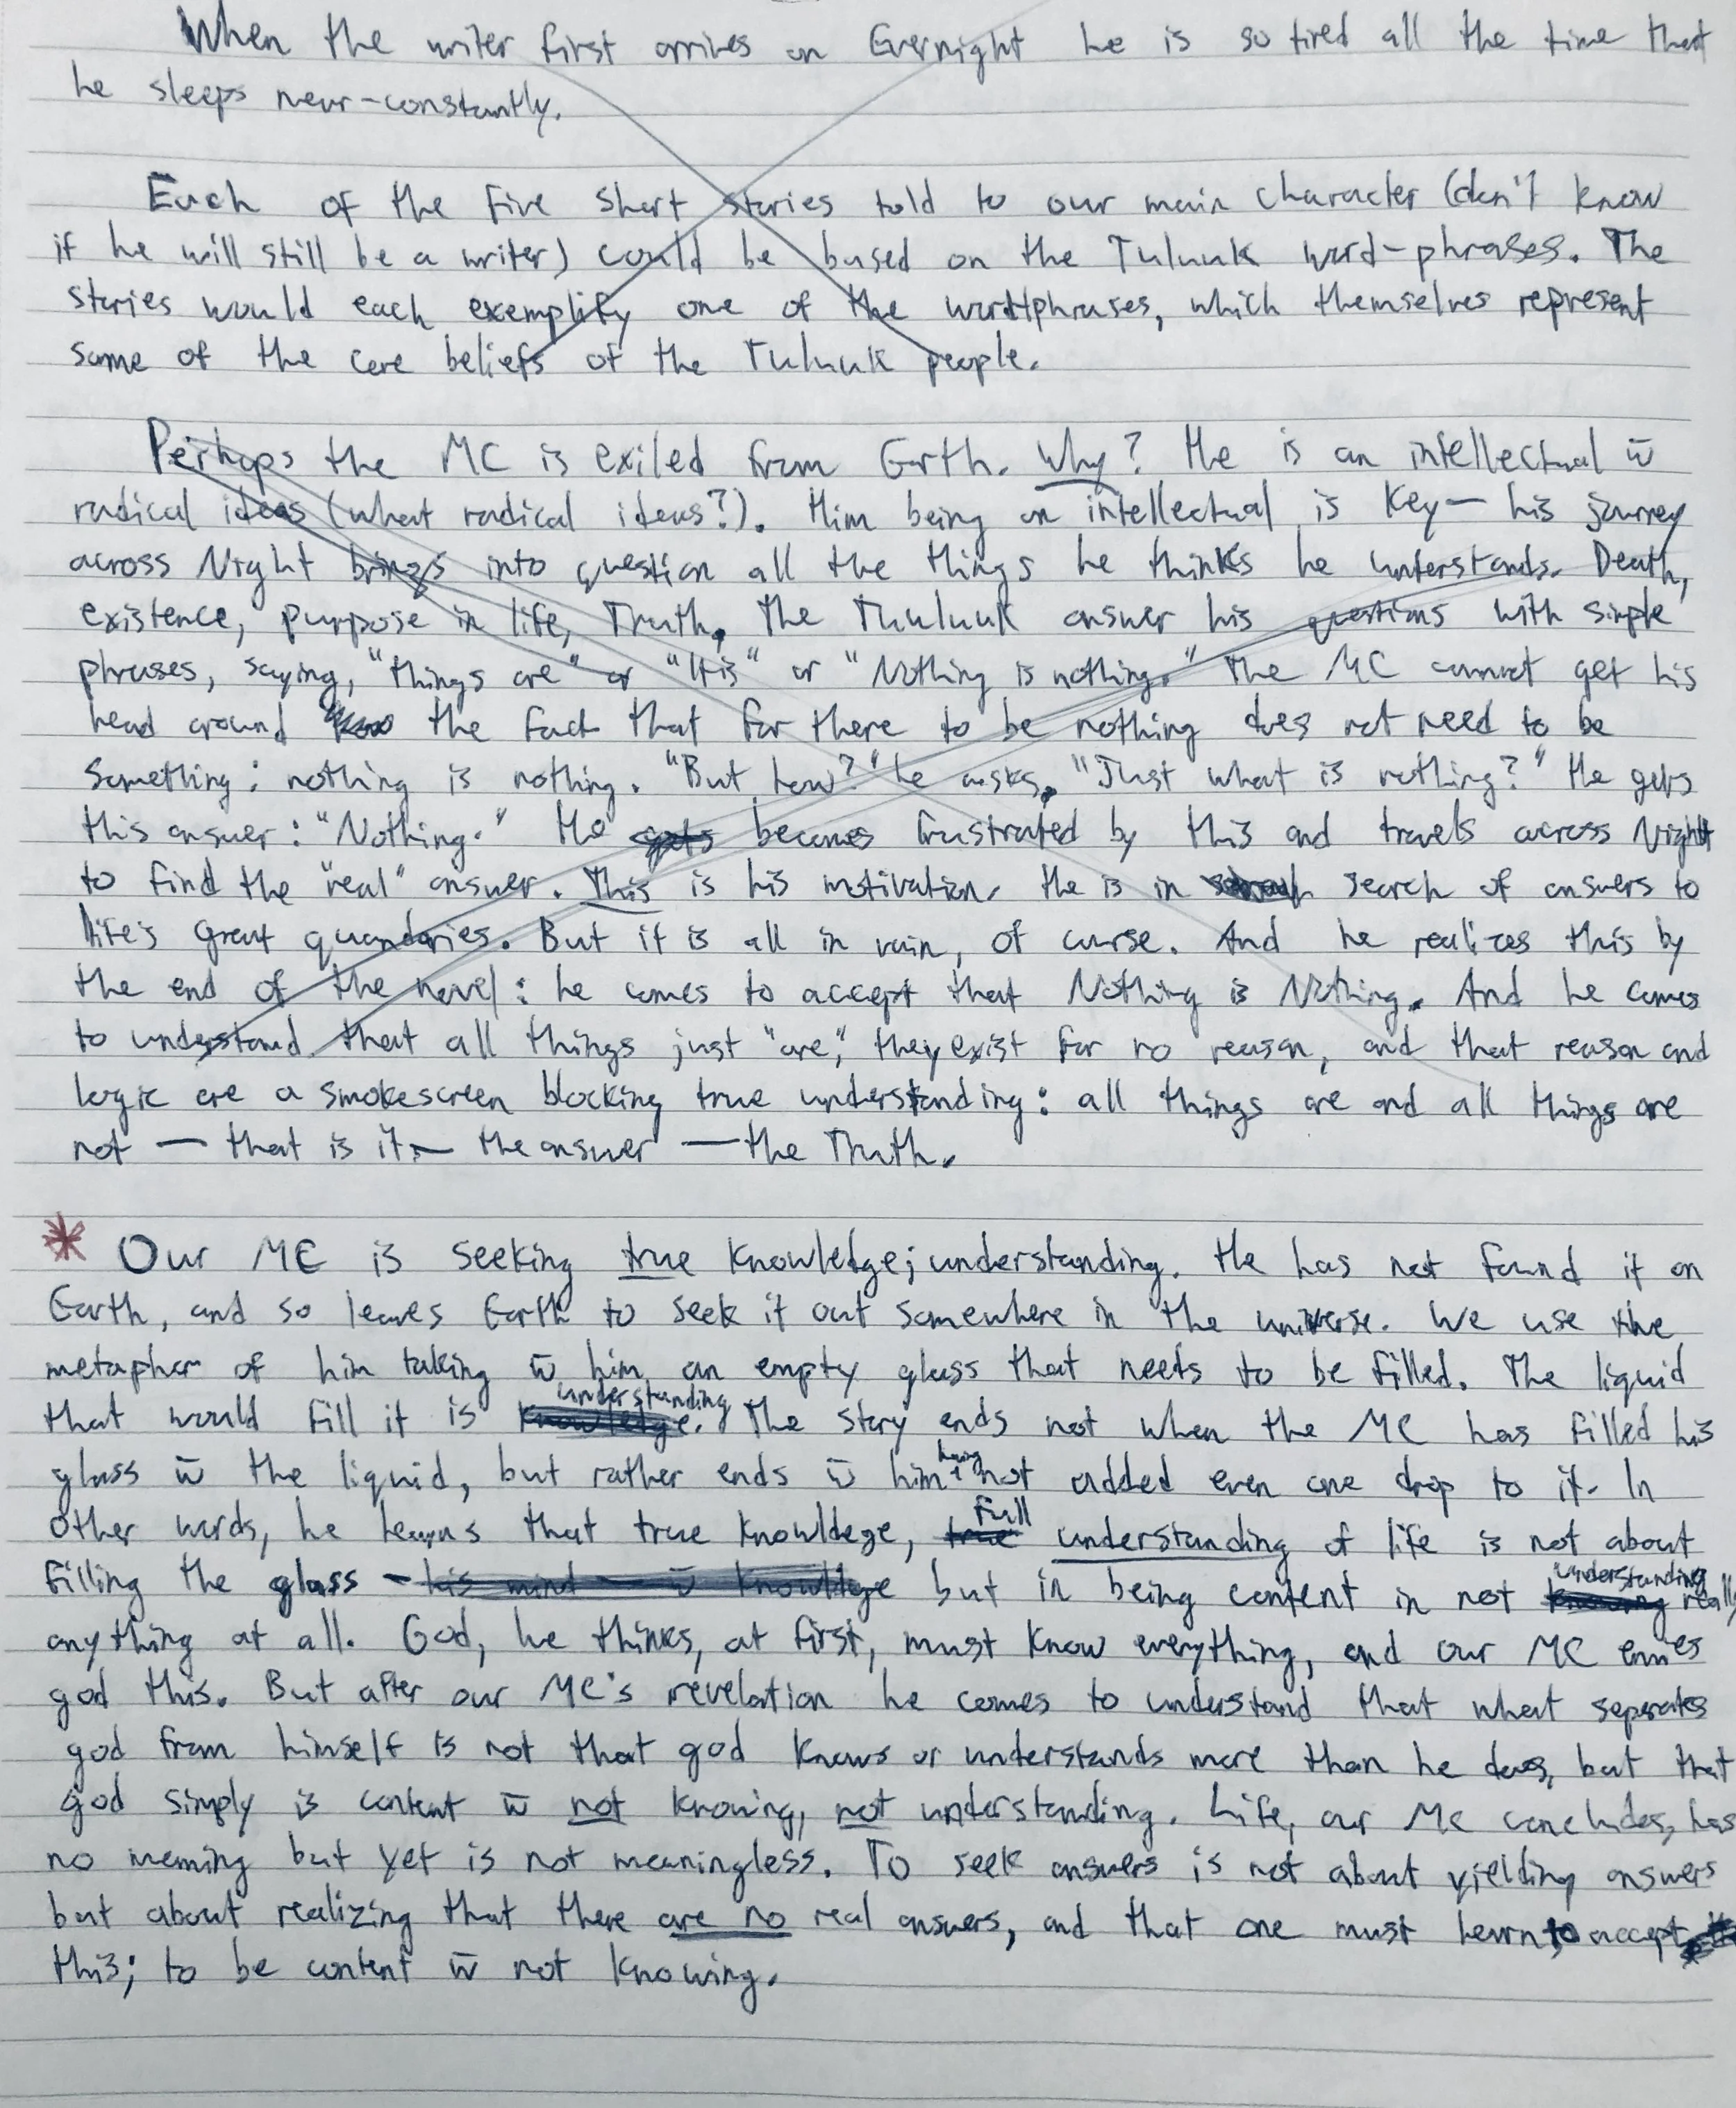 When the writer first arrives on Evernight he is so tired all the time that
he sleeps near-constantly.
Each of the five short stories told to our main character (don't know
if he will still be a writer) could be based on the Tuluuk word-phrases. The
stories would each exemplify one of the word/phrases, which themselves represent
some of the core beliefs of the Tuluuk people.
Perhaps the MC is exiled from Earth. Why? He is an intellectual w̄
radical ideas (what radical ideas?). Him being an intellectual is key— his journey
across Night brings into question all the things he thinks he understands. Death,
existence, purpose in life, Truth. The Thuluuk answer his questions with simple
phrases, saying, "things are" or "It is" or "Nothing is nothing." The MC cannot get his
head around the fact that for there to be nothing does not need to be
something: nothing is nothing. "But how?" he asks. "Just what is nothing?" He gets
this answer: "Nothing." He gets becomes frustrated by this and travels across Night
to find the "real" answer. This is his motivation. He is in search of answers to
life's great quandaries. But it is all in vain, of curse. And he realizes this by
the end of the novel: he comes to accept that Nothing is Nothing. And he comes
to understand that all things just "are," they exist for no reason, and that reason and
logic are a smokescreen blocking true understanding: all things are and all things are
not — that is it — the answer — the Truth.
* Our MC is seeking true knowledge; understanding. He has not found it on
Earth, and so leaves Earth to seek it out somewhere in the universe. We use the
metaphor of him taking w̄ him an empty glass that needs to be filled. The liquid
that would fill it is knowledge understanding. The story ends not when the MC has filled his
glass w̄ the liquid, but rather ends w̄ him having not added even one drop to it. In
other words, he learns that true knowldege, true Full understanding of life is not about
filling the glass - his mind — w̄ knowldege but in being content in not knowing understanding really
anything at all. God, he thinks, at first, must know everything, and our MC envies
god this. But after our MC's revelation he comes to understand that what seperates
god from himself is not that god knows or understands more than he does, but that
god simply is content w̄ not knowing, not understanding. Life, our MC concludes, has
no meaning but yet is not meaningless. To seek answers is not about yielding answers
but about realizing that there are no real answers, and that one must learn to accept
this; to be content w̄ not knowing.